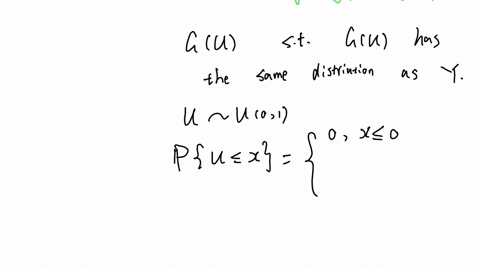 G(U) s.t. G(U) has
the same distrintion as Y.
U ~ U(0,1)
P{U≤x} = { 0, x≤0